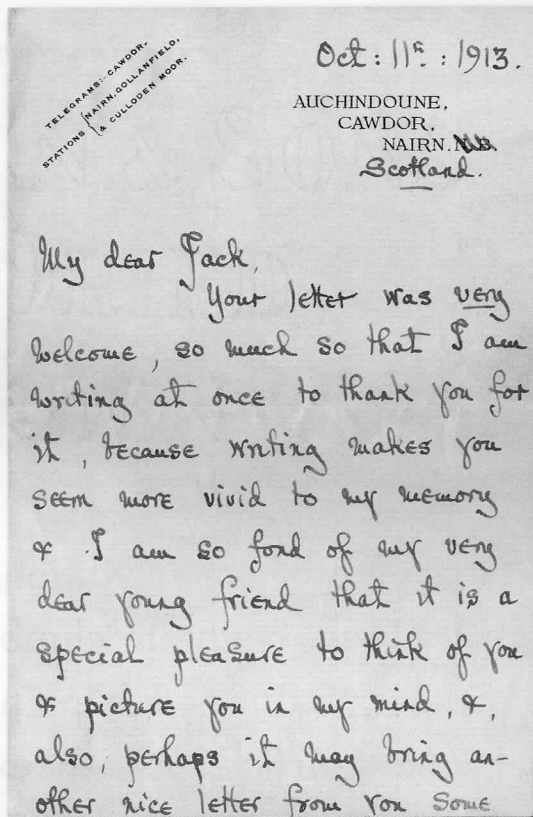 TELEGRAMS:- CAWDOR,
STATIONS { NAIRN, GOLLANFIELD,
& CULLODEN MOOR.
Oct: 11th: 1913.
AUCHINDOUNE,
CAWDOR,
NAIRN. N.B.
Scotland.
My dear Jack,
Your letter was very
welcome, so much so that I am
writing at once to thank you for
it, because writing makes you
seem more vivid to my memory
& I am so fond of my very
dear young friend that it is a
special pleasure to think of you
& picture you in my mind, &,
also, perhaps it may bring an-
other nice letter from you some